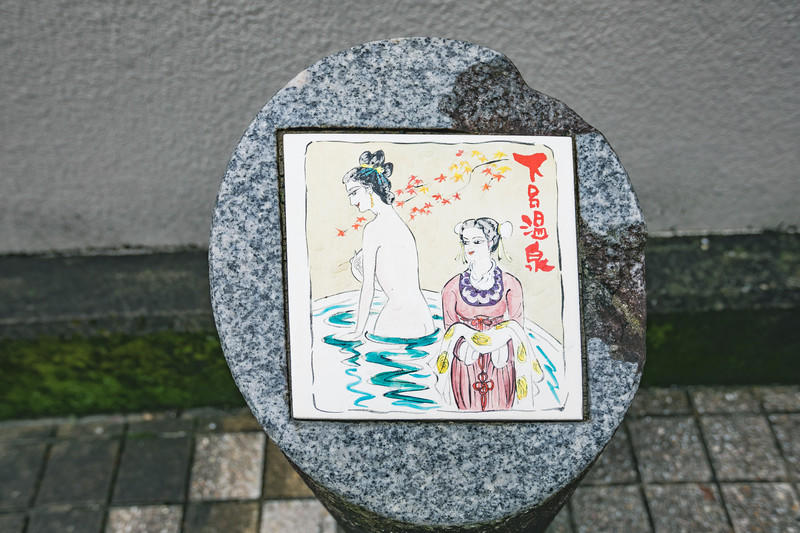 下呂温泉